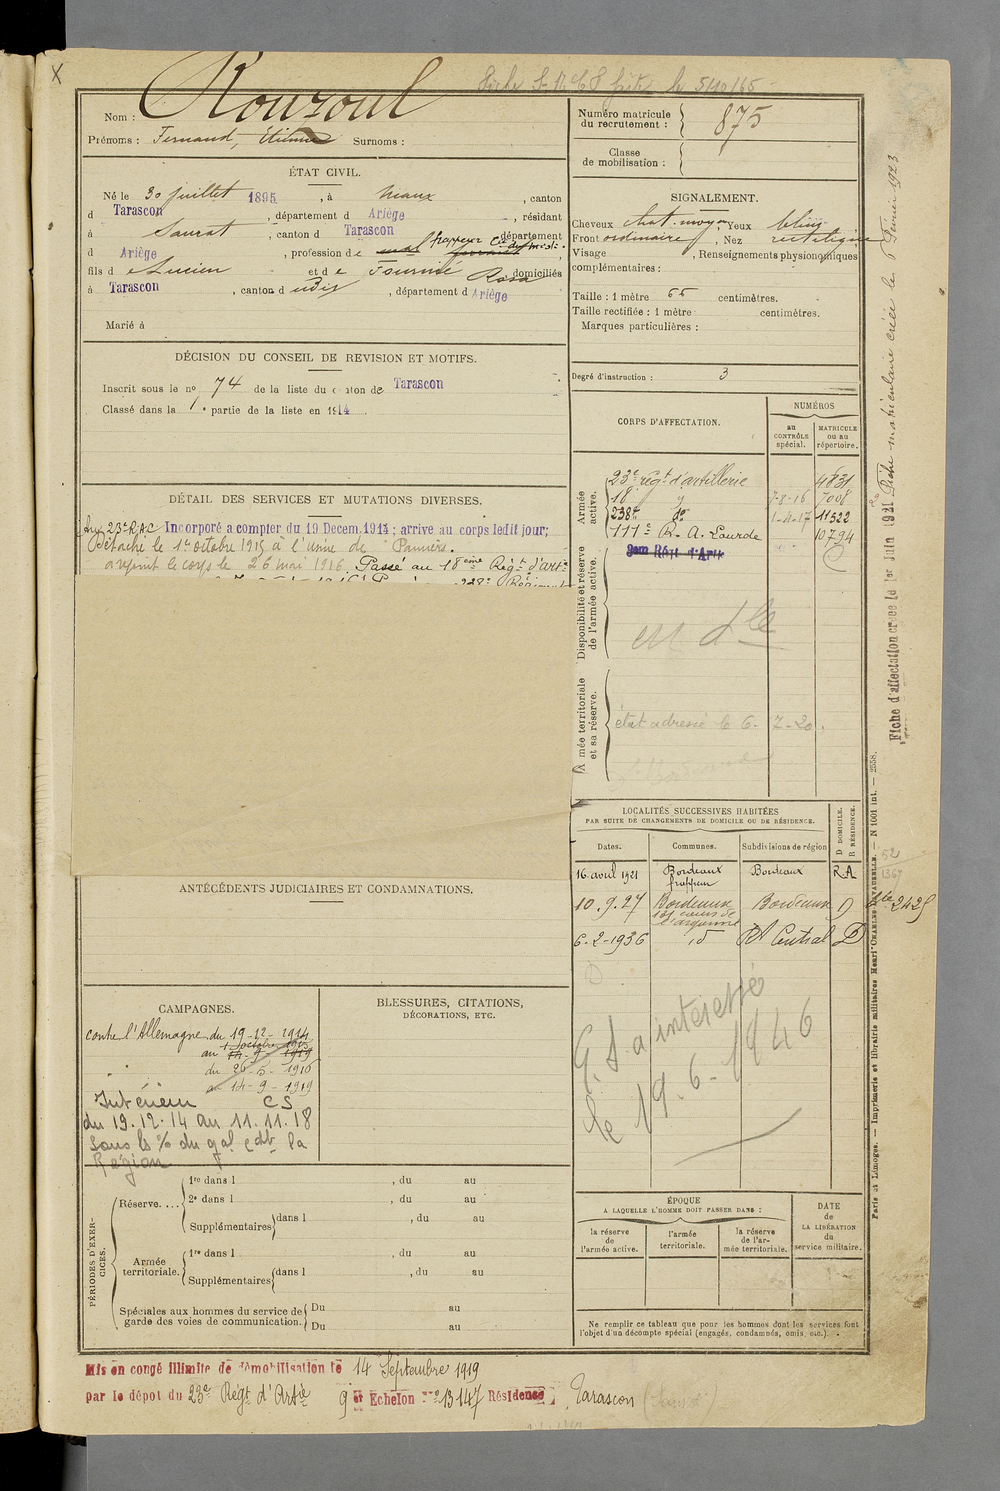 X
Fiche S.N.C.F faite le 5/10/65
Nom : Rouzoul
Prénoms : Fernand, Etienne Surnoms :
ÉTAT CIVIL.
Né le 30 juillet 1895, à Niaux, canton
d Tarascon, département d Ariège, résidant
à Saurat, canton d Tarascon département
d Ariège, profession de frappeur
fils de Lucien et de Fournié Rosa domiciliés
à Tarascon, canton d udis, département d Ariège
Marié à
DÉCISION DU CONSEIL DE REVISION ET MOTIFS.
Inscrit sous le no 74 de la liste du canton de Tarascon
Classé dans la 1e partie de la liste en 1914.
DÉTAIL DES SERVICES ET MUTATIONS DIVERSES.
Au 23e R.A.C Incorporé a compter du 19 Decem. 1914; arrive au corps ledit jour;
Détaché le 1er octobre 1915 à l'usine de Pamiers.
a rejoint le corps le 26 mai 1916. Passé au 18ème Régt d'artie
ANTÉCÉDENTS JUDICIAIRES ET CONDAMNATIONS.
CAMPAGNES.
contre l'Allemagne du 19-12-1914
au 1 octobre 1915
14-9-1919
du 26-5-1916
au 14-9-1919
Intérieur CS
du 19.12.14 au 11.11.18
sous les % du gal cdt la
Région
BLESSURES, CITATIONS,
DÉCORATIONS, ETC.
PÉRIODES D'EXERCICES.
Réserve....
1re dans l , du au
2e dans l , du au
Supplémentaires dans l , du au
Armée territoriale.
1re dans l , du au
Supplémentaires dans l , du au
Spéciales aux hommes du service de garde des voies de communication.
Du au
Du au
Mis en congé illimité de démobilisation le 14 Septembre 1919
par le dépot du 23e Régt d'Artie 9 er Echelon No 13147 Résidence Tarascon (Saurat)
Numéro matricule
du recrutement : 875
Classe
de mobilisation :
SIGNALEMENT.
Cheveux chat. moyen, Yeux bleus
Front ordinaire, Nez rectiligne
Visage , Renseignements physionomiques
complémentaires :
Taille : 1 mètre 66 centimètres.
Taille rectifiée : 1 mètre centimètres.
Marques particulières :
Degré d'instruction : 3
CORPS D'AFFECTATION.
NUMÉROS
au
CONTRÔLE
spécial.
MATRICULE
ou au
répertoire.
Armée active.
23e régt d'artillerie 4831
18 7-8-16 7008
238e do 1-4-17 11522
117e R.A. Lourde 10794
Disponibilité et réserve de l'armée active.
Armée territoriale et sa réserve.
état adressé le 6-7-20.
LOCALITÉS SUCCESSIVES HABITÉES
PAR SUITE DE CHANGEMENTS DE DOMICILE OU DE RÉSIDENCE.
D DOMICILE.
R RÉSIDENCE.
Dates. Communes. Subdivisions de région
16 avril 1921 Bordeaux frappeur Bordeaux R.A
10.9.27 Bordeaux 101 cours de l'argonne Bordeaux D
6-2-1936 id Rt Central D
G.S. a intéressé
le 19.6.1946
ÉPOQUE
A LAQUELLE L'HOMME DOIT PASSER DANS :
la réserve
de
l'armée active.
l'armée
territoriale.
la réserve
de l'ar-
mée territoriale.
DATE
de
LA LIBÉRATION
du
service militaire.
Ne remplir ce tableau que pour les hommes dont les services font
l'objet d'un décompte spécial (engagés, condamnés, omis, etc.).
Fiche d'affectation créée le 1er Juin 1921
Fiche matriculaire créée le Février 1923
52
1367
2425
Paris et Limoges. — Imprimerie et librairie militaires Henri CHARLES-LAVAUZELLE. — N 1601 int. — 2558.